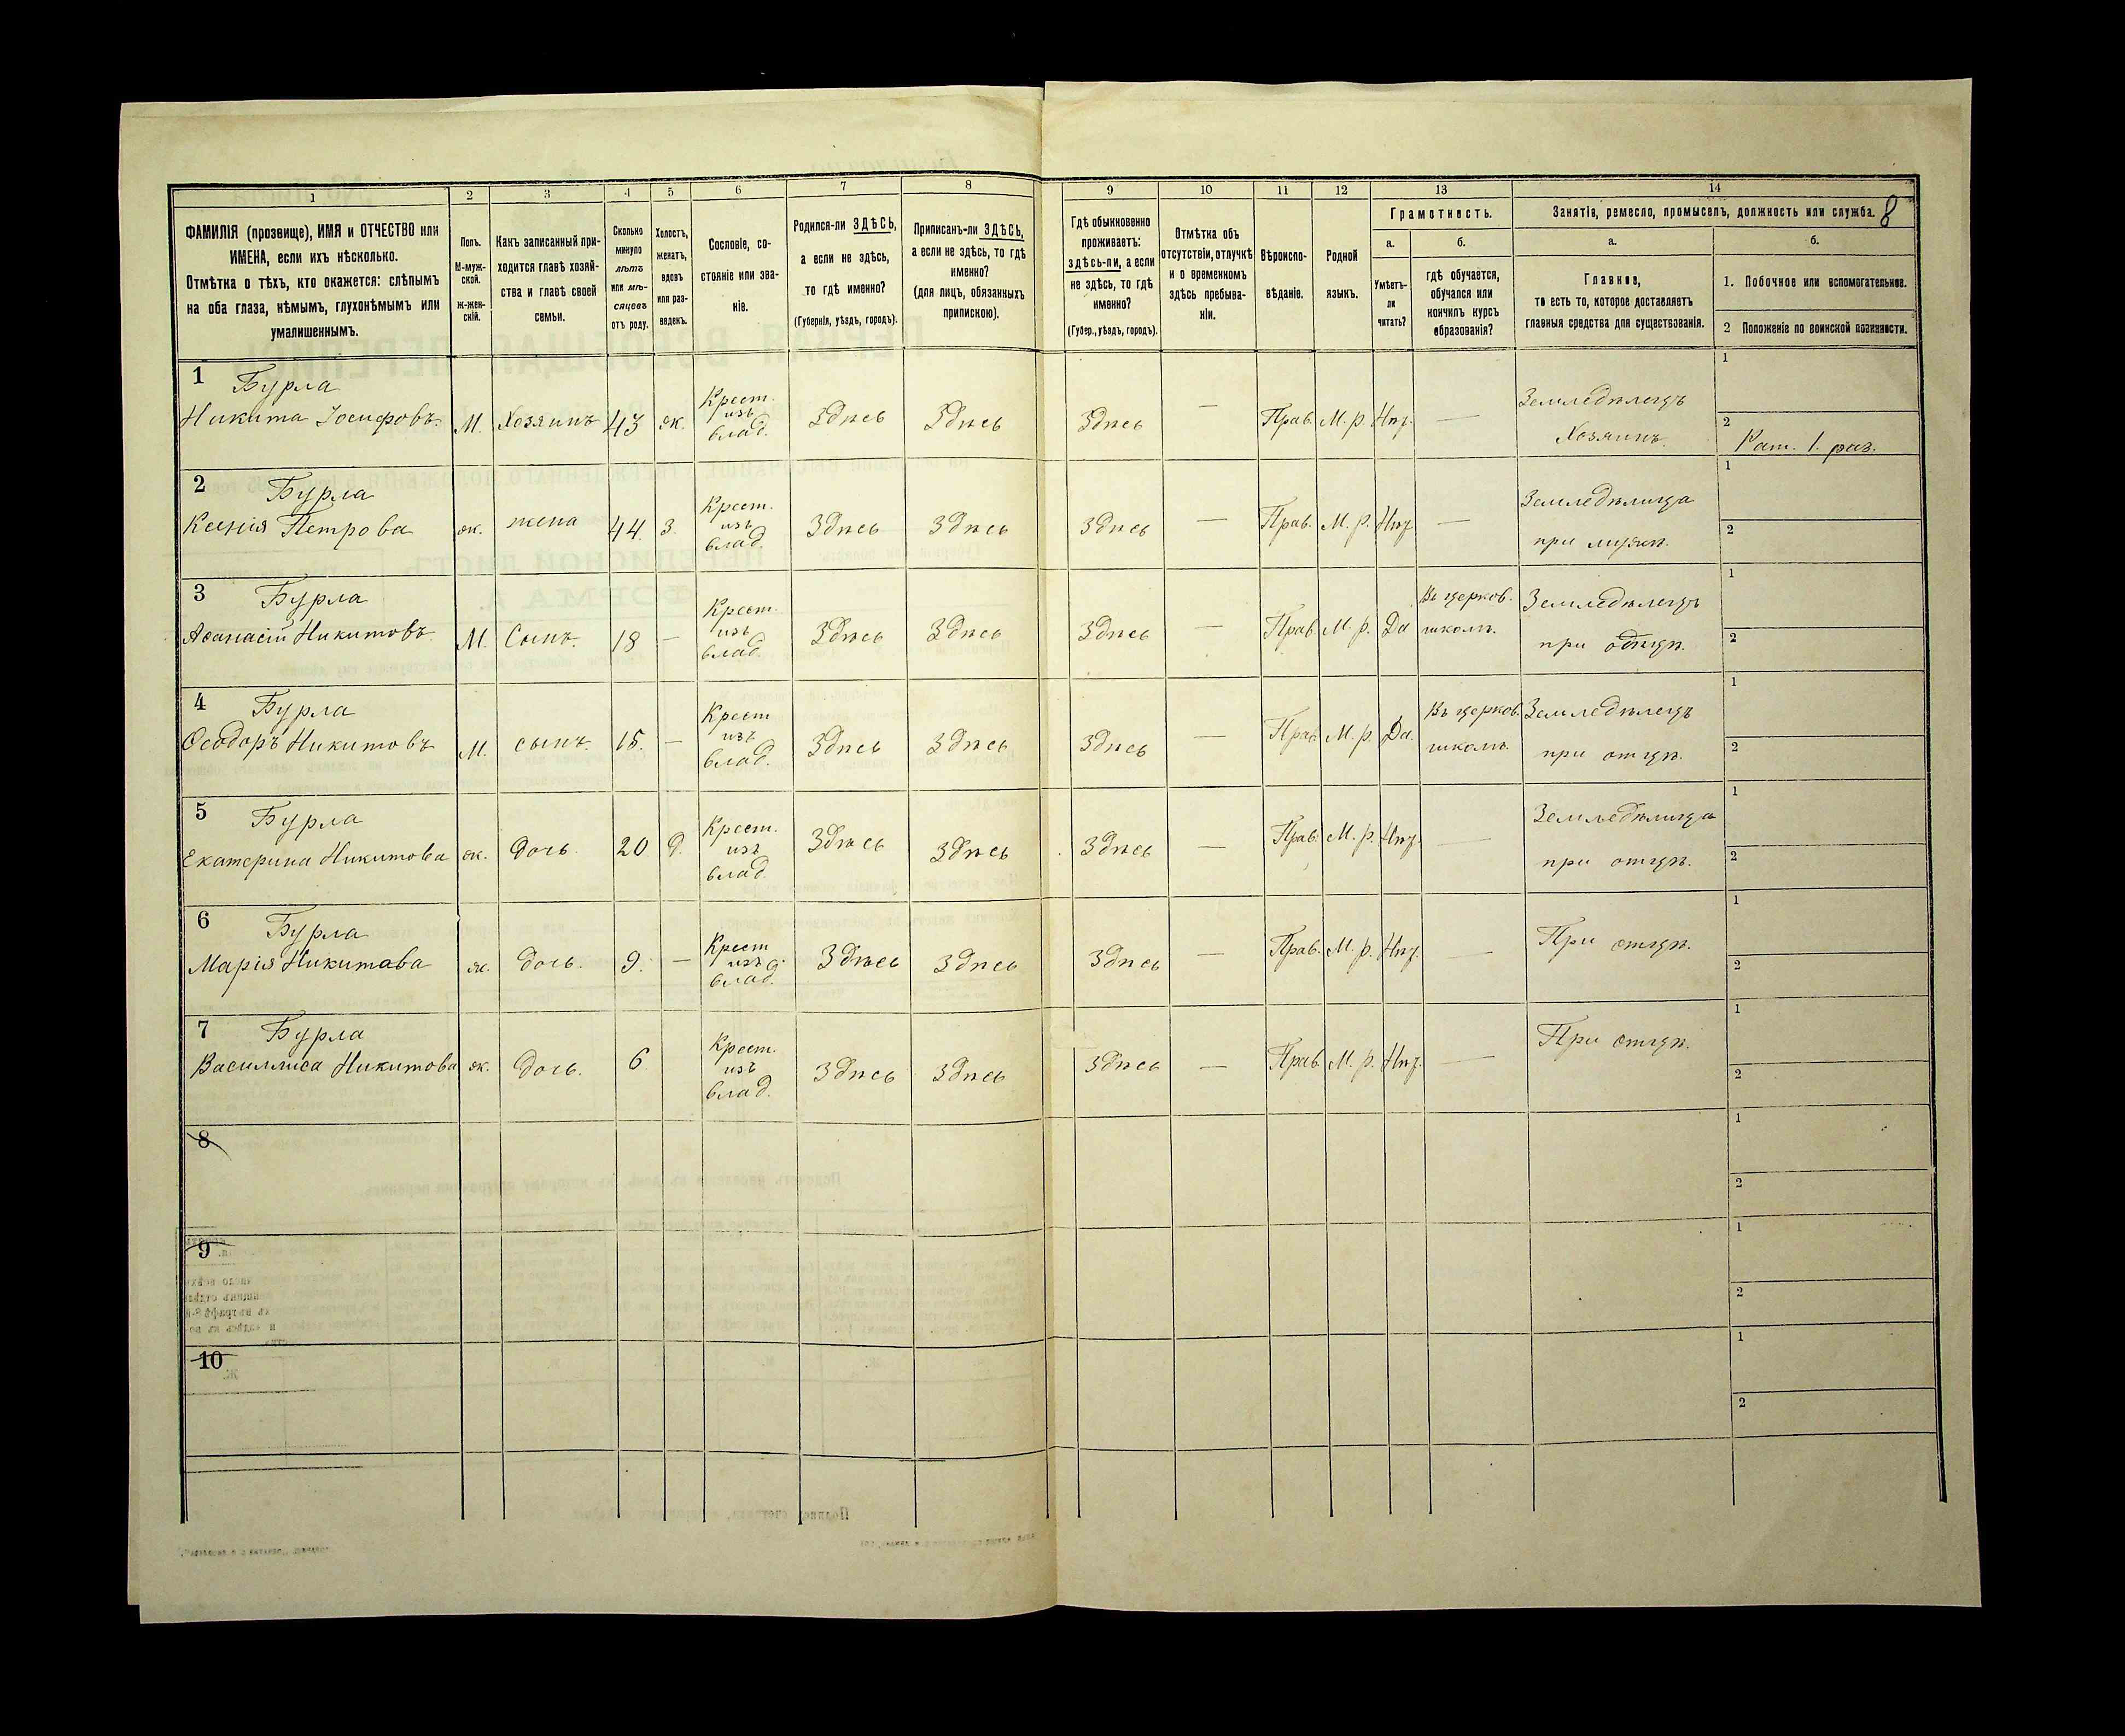 1 2 3 4 5 6 7 8 9 10 11 12 13 14
8
ФАМИЛІЯ (прозвище), ИМЯ и ОТЧЕСТВО или
ИМЕНА, если ихъ нѣсколько.
Отмѣтка о тѣхъ, кто окажется: слѣпымъ
на оба глаза, нѣмымъ, глухонѣмымъ или
умалишеннымъ.
Полъ.
М-муж-
ской.
ж-жен-
скій.
Какъ записанный при-
ходится главѣ хозяй-
ства и главѣ своей
семьи.
Сколько
минуло
лѣтъ
или мѣ-
сяцевъ
отъ роду.
Холостъ,
женатъ,
вдовъ
или раз-
веденъ.
Сословіе, со-
стояніе или зва-
ніе.
Родился-ли ЗДѢСЬ,
а если не здѣсь,
то гдѣ именно?
(Губернія, уѣздъ, городъ).
Приписанъ-ли ЗДѢСЬ,
а если не здѣсь, то гдѣ
именно?
(для лицъ, обязанныхъ
припискою).
Гдѣ обыкновенно
проживаетъ:
здѣсь-ли, а если
не здѣсь, то гдѣ
именно?
(Губер., уѣздъ, городъ).
Отмѣтка объ
отсутствіи, отлучкѣ
и о временномъ
здѣсь пребыва-
ніи.
Вѣроиспо-
вѣданіе.
Родной
языкъ.
Грамотность.
а.
Умѣетъ-
ли
читать?
б.
гдѣ обучается,
обучался или
кончилъ курсъ
образованія?
Занятіе, ремесло, промыселъ, должность или служба.
а.
Главное,
то есть то, которое доставляетъ
главныя средства для существованія.
б.
1. Побочное или вспомогательное.
2 Положеніе по воинской повинности.
1 Бурла
Никита Іосифовъ. М. Хозяинъ 43 ж. Крест. изъ влад. Здѣсь Здѣсь Здѣсь — Прав. М. р. Нѣт. — Земледѣлецъ
Хозяинъ. 1
2 Рат. 1. раз.
2 Бурла
Ксенія Петрова ж. жена 44. З. Крест. изъ влад. Здѣсь Здѣсь Здѣсь — Прав. М. р. Нѣт. — Земледѣлица
при мужѣ. 1
2
3 Бурла
Аѳанасій Никитовъ. М. Сынъ. 18 — Крест. изъ влад. Здѣсь Здѣсь Здѣсь — Прав. М. р. Да Въ церков. школѣ. Земледѣлецъ
при отцѣ. 1
2
4 Бурла
Ѳеодоръ Никитовъ М. сынъ. 15. — Крест изъ влад. Здѣсь Здѣсь Здѣсь — Прав. М. р. Да. Въ церков. школѣ. Земледѣлецъ
при отцѣ. 1
2
5 Бурла
Екатерина Никитова ж. дочь. 20 д. Крест. изъ влад. Здѣсь Здѣсь Здѣсь — Прав. М. р. Нѣт. — Земледѣлица
при отцѣ. 1
2
6 Бурла
Марія Никитова ж. дочь. 9. — Крест изъ влад. Здѣсь Здѣсь Здѣсь — Прав. М. р. Нѣт. — При отцѣ. 1
2
7 Бурла
Василлиса Никитова ж. дочь. 6 Крест. изъ влад. Здѣсь Здѣсь Здѣсь — Прав. М. р. Нѣт. — При отцѣ. 1
2
8 1
2
9 1
2
10 1
2